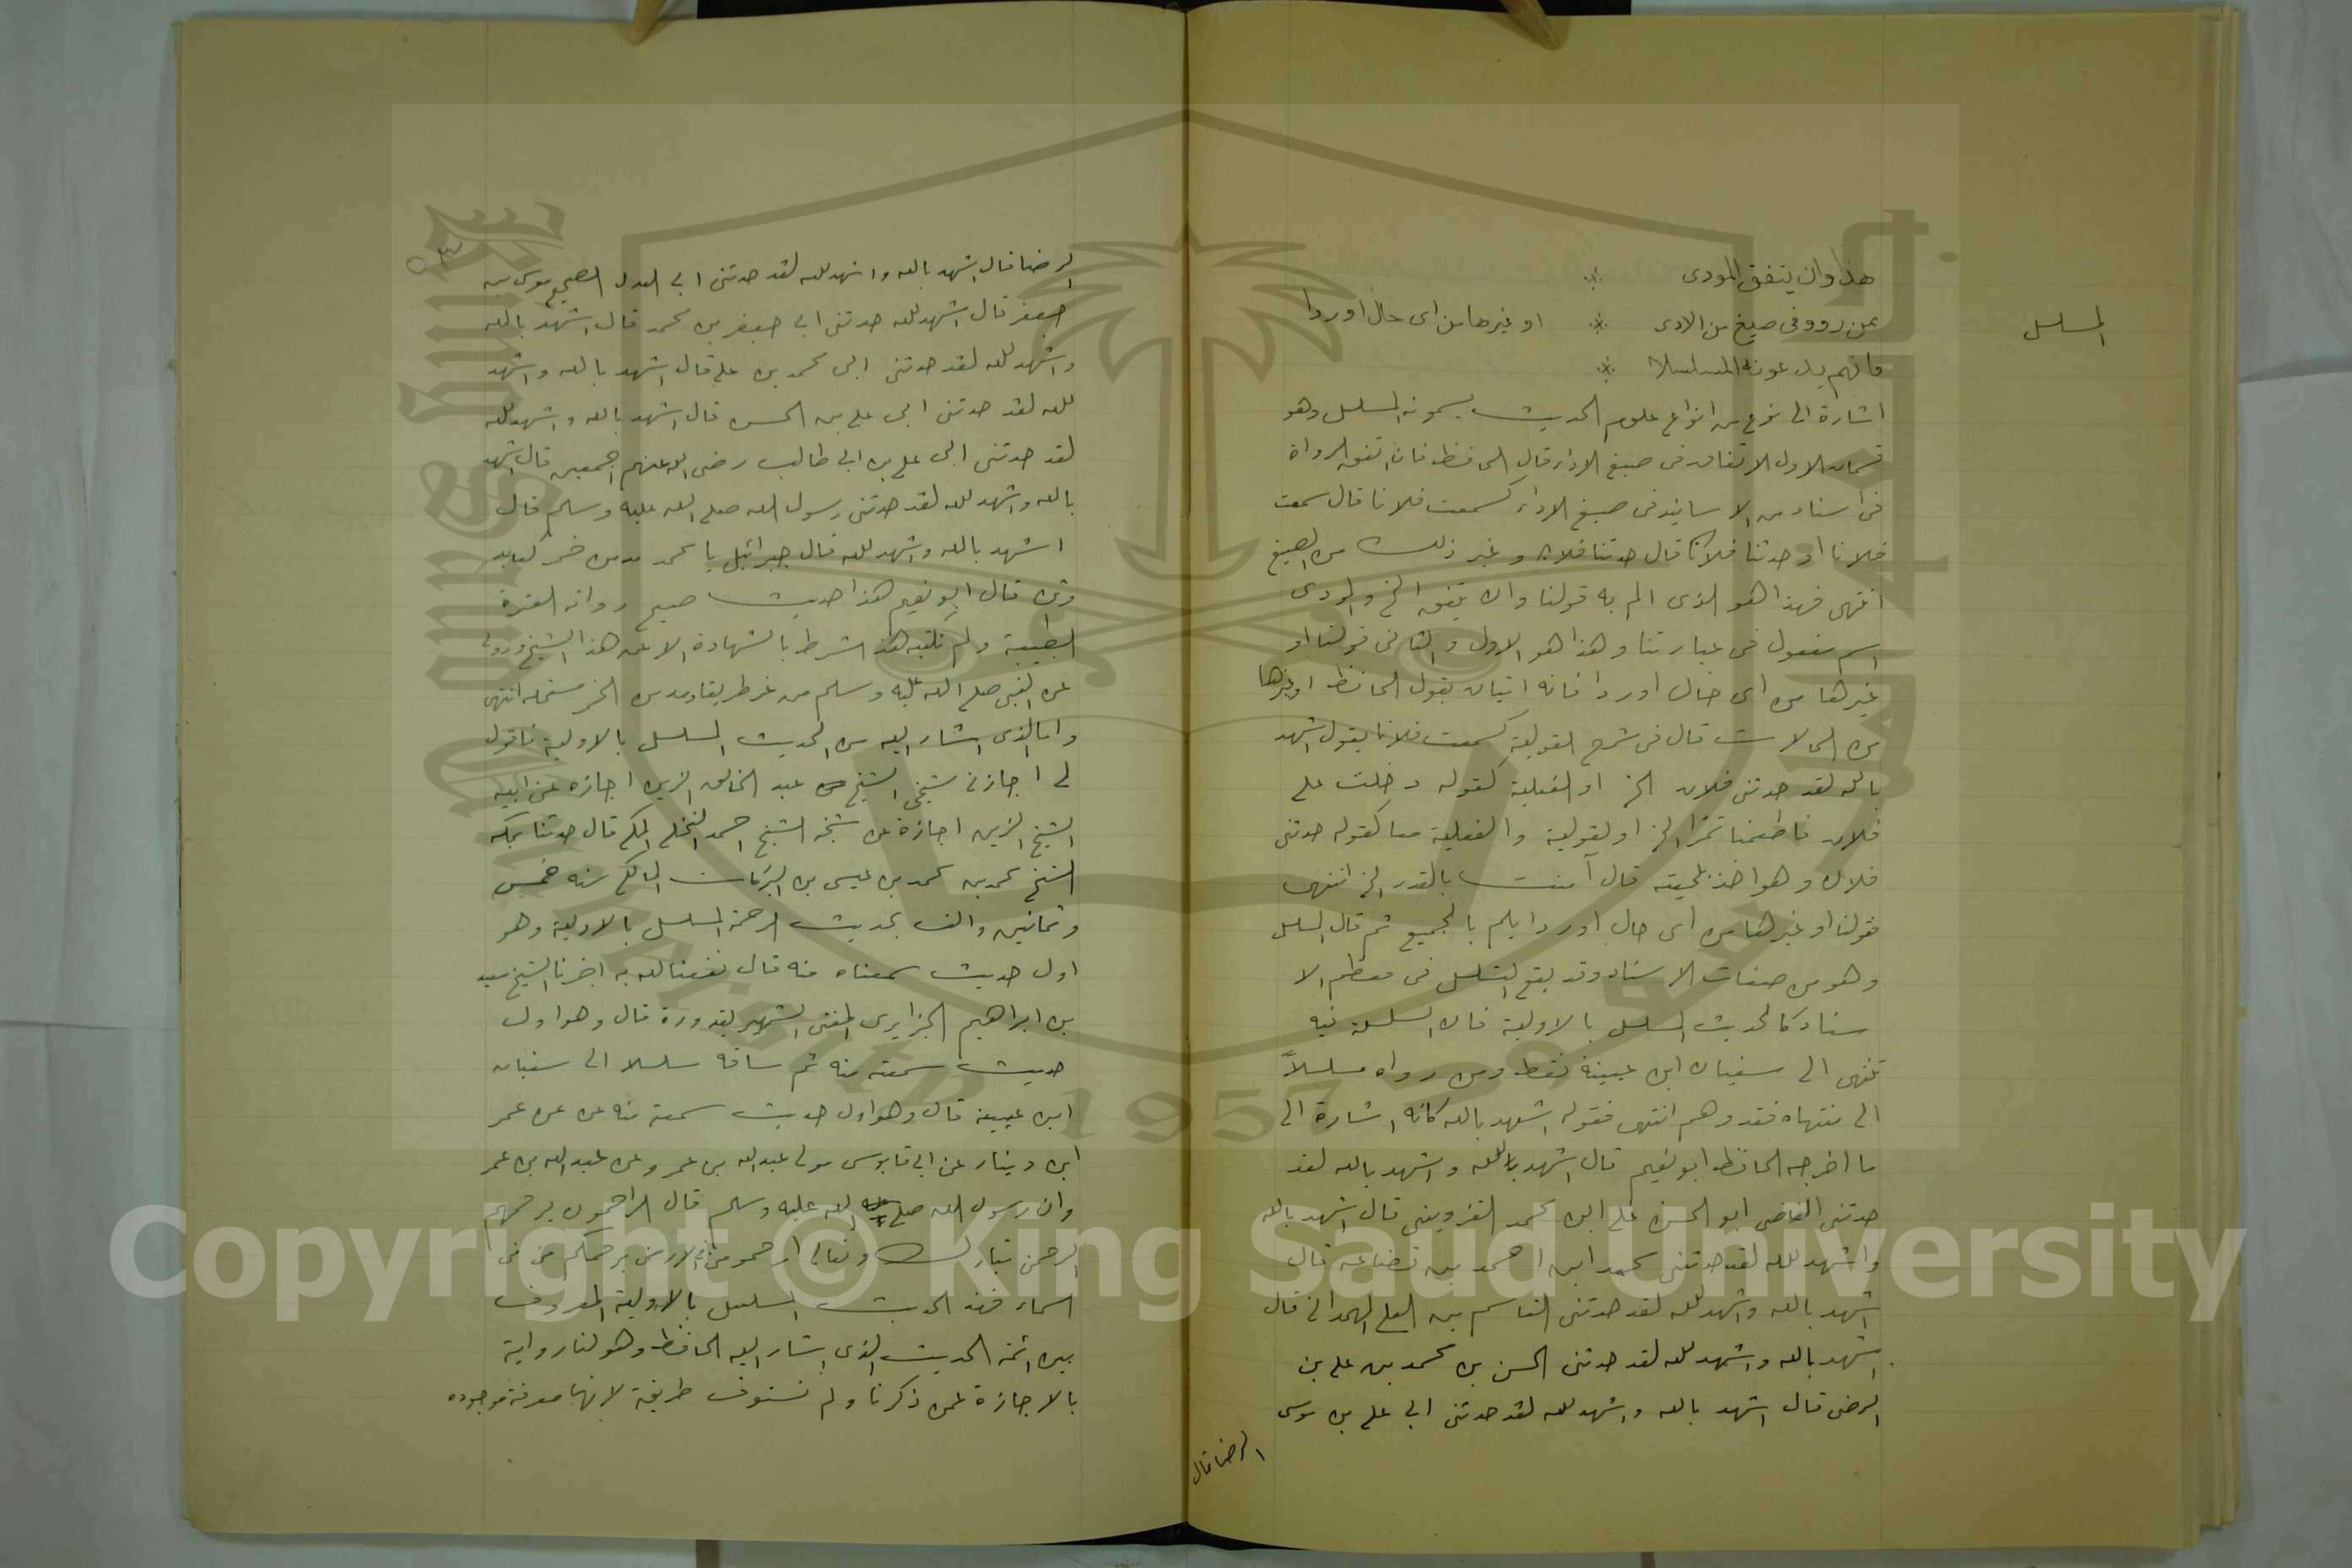 المسلسل
هذا وان يتفق المودى
عمن رووفى صيغ من الادى او غيرها من اى حال اوردا
فانهم يدعونه المسلسلا
اشارة الى نوع من انواع علوم الحديث يسمونه المسلسل وهو
قسمان الاول الاتفاق فى صيغ الاداء قال الحافظ فان اتفق الرواة
فى اسناد من الاسانيد فى صيغ الاداء كسمعت فلانا قال سمعت
فلانا او حدثنا فلان قال حدثنا فلان وغير ذلك من الصيغ
انتهى فهذا هو الذى الم به قولنا وان يتفق الخ والمودى
اسم مفعول فى عبارتنا وهذا هو الاول والثانى قولنا او
غيرها من اى حال اوردا فانه اتيان بقول الحافظ او غيرها
من الحالات قال فى شرح القولية كسمعت فلانا يقول اشهد
بالله لقد حدثنى فلان الخ او الفعلية كقوله دخلت على
فلان فاطعمنا تمرا الخ او القولية والفعلية معا كقوله حدثنى
فلان وهو اخذ بلحيته قال آمنت بالقدر الخ انتهى
فقولنا او غيرها من اى حال اوردا يلم بالجميع ثم قال المسلسل
وهو من صفات الاسناد وقد يقع التسلسل فى معظم الا
سناد كالحديث المسلسل بالاولية فان السلسلة فيه
تنتهى الى سفيان ابن عيينة فقط ومن رواه مسلسلاً
الى منتهاه فقد وهم انتهى فقوله اشهد بالله كانه اشارة الى
ما اخرجه الحافظ ابو نعيم قال اشهد بالله واشهد بالله لقد
حدثنى القاضى ابو الحسن على ابن محمد القزوينى قال اشهد بالله
واشهد لله لقد حدثنى محمد ابن احمد بن قضاعه قال
اشهد بالله واشهد لله لقد حدثنى القاسم بن العلى الهمدانى قال
اشهد بالله واشهد لله لقد حدثنى الحسن بن محمد بن على بن
الرضى قال اشهد بالله واشهد لله لقد حدثنى ابى على بن موسى
الرضا قال
الرضا قال اشهد بالله واشهد لله لقد حدثنى ابى العدل الصحيح موسى بن
جعفر قال اشهد لله حدثنى ابى جعفر بن محمد قال اشهد بالله
واشهد لله لقد حدثنى ابى محمد بن على قال اشهد بالله واشهد
لله لقد حدثنى ابى على بن الحسين قال اشهد بالله واشهد لله
لقد حدثنى ابى على بن ابى طالب رضى الله عنهم اجمعين قال اشهد
بالله واشهد لله لقد حدثنى رسول الله صلى الله عليه وسلم قال
اشهد بالله واشهد لله قال جبرائيل يا محمد مدمن خمر كعابد
وثن قال ابو نعيم هذا حديث صحيح رواته العترة
الطيبة ولم نكتبه هذا الشرط بالشهادة الا عن هذا الشيخ وروى
عن النبى صلى الله عليه وسلم من غير طريقه ومدمن الخمر مستحله انتهى
واما الذى اشار اليه من الحديث المسلسل بالاولية فاقول
اجازنى شيخى الشيخ عبد الخالق الزين اجازه عن ابيه
الشيخ الزين اجازة عن شيخه الشيخ احمد النخلى المكى قال حدثنا بمكه
الشيخ محمد بن محمد بن عيسى بن البركات المالكى سنه خمس
وثمانين والف بحديث الرحمة المسلسل بالاولية وهو
اول حديث سمعناه منه قال نفعنا الله به اخبرنا الشيخ سعيد
بن ابراهيم الجزايرى المفتى الشهير بقدورة قال وهو اول
حديث سمعته منه ثم ساقه مسلسلا الى سفيان
ابن عيينه قال وهو اول حديث سمعته منه عن عن عمر
ابن دينار عن ابى قابوس مولى عبد الله بن عمر وعن عبد الله بن عمر
وان رسول الله صلى الله عليه وسلم قال الراحمون يرحمهم
الرحمن تبارك وتعالى ارحمو من فى الارض يرحمكم من فى
السماء فهذا الحديث المسلسل بالاولية المعروف
بين ائمة الحديث الذى اشار اليه الحافظ وهو لنا رواية
بالاجازة عمن ذكرنا ولم نستوف طريقة لانها معرفة موجوده
Copyright © King Saud University
1957